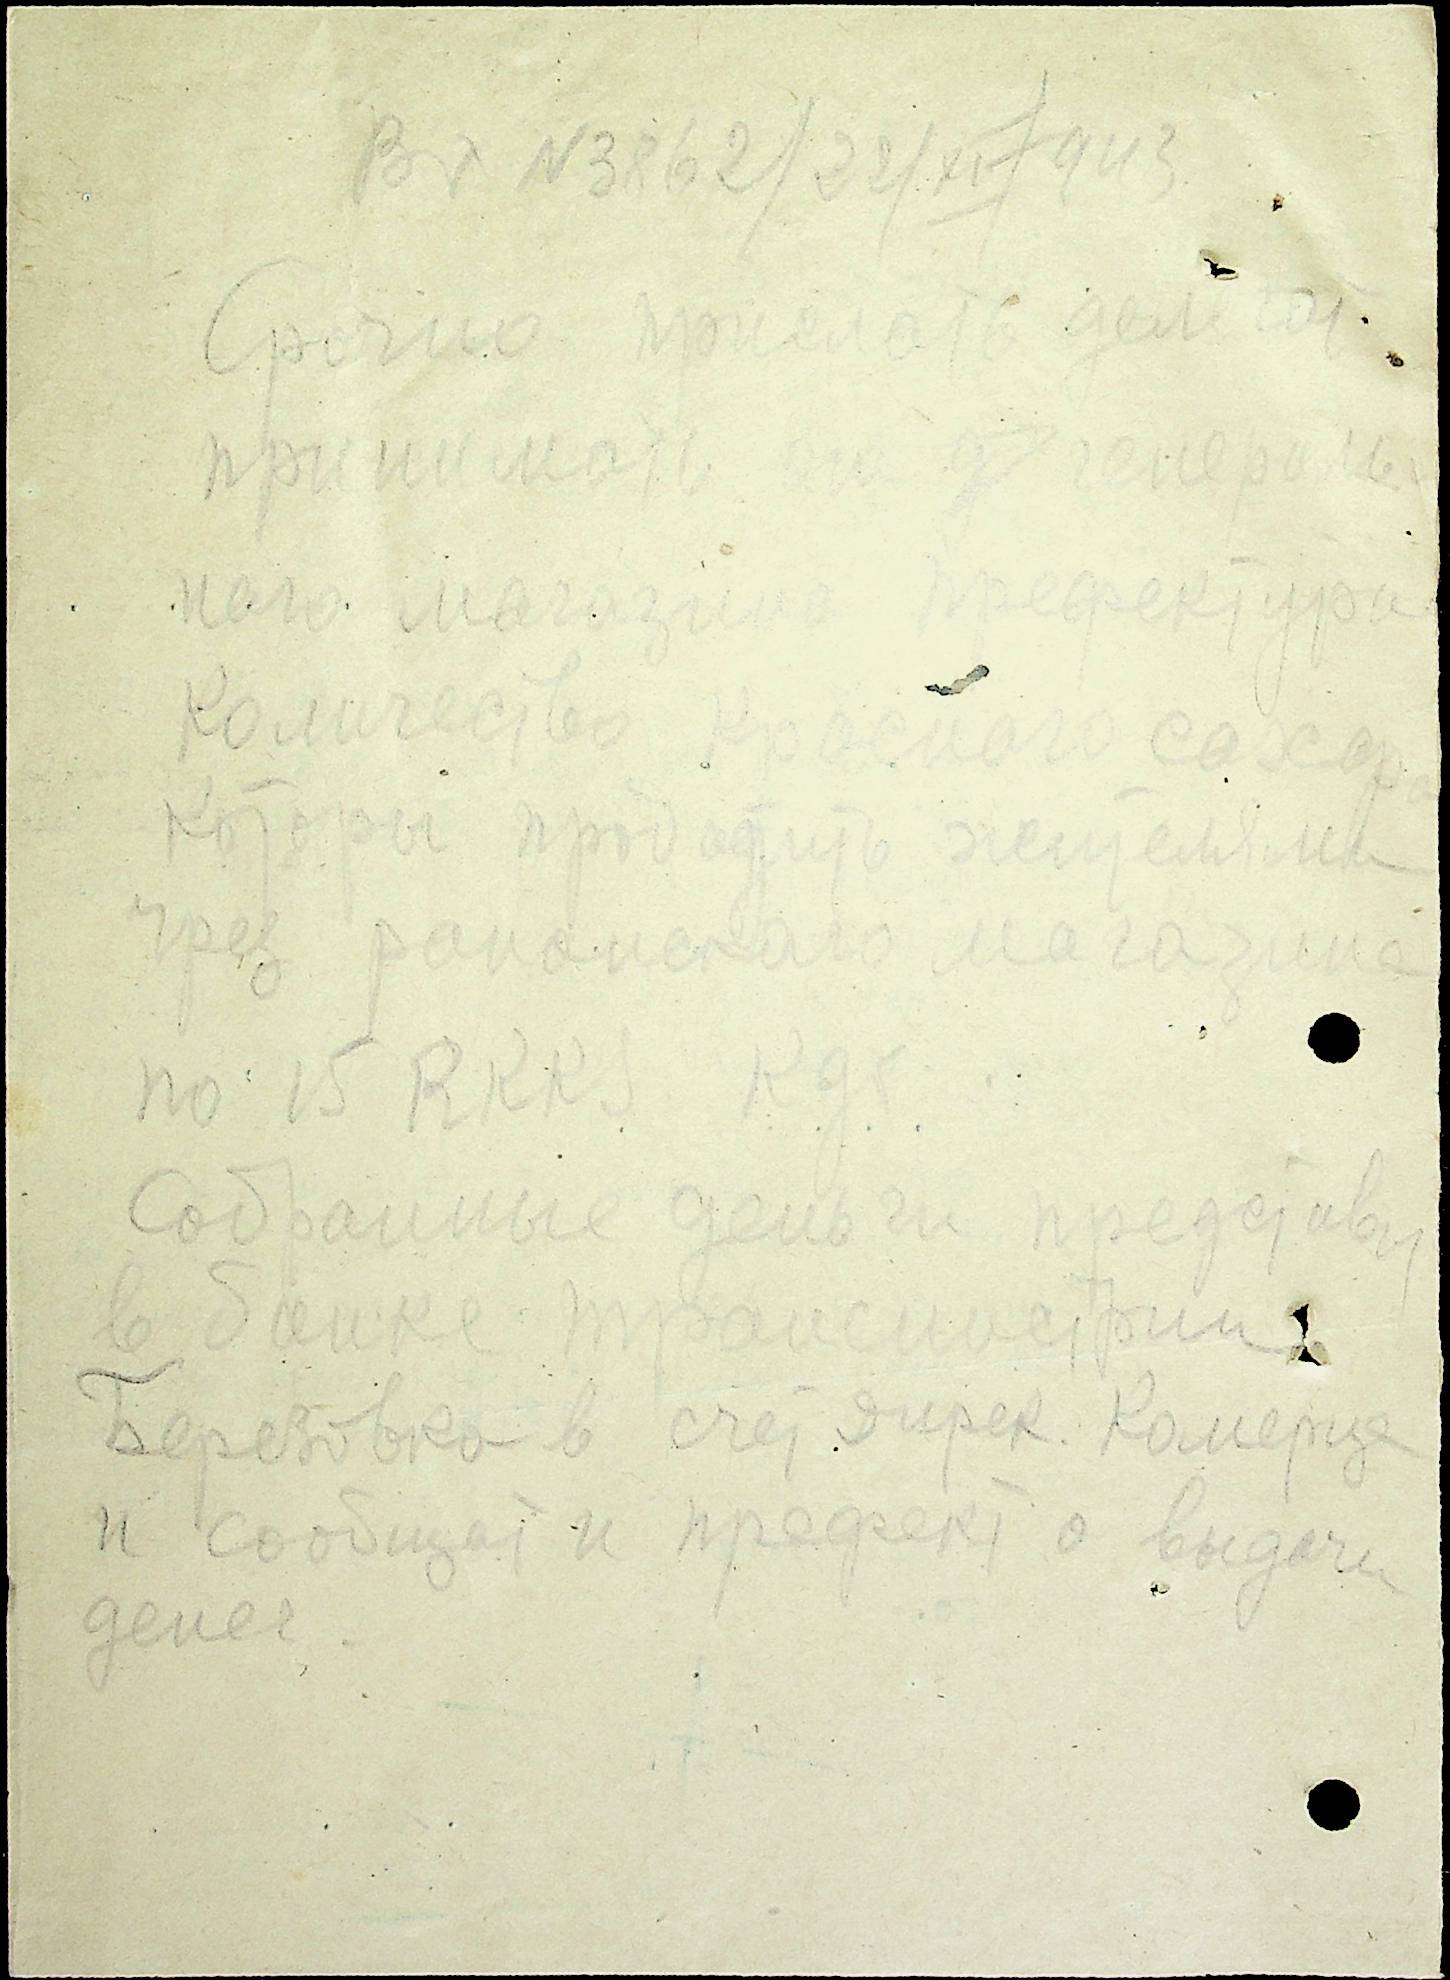 Вх N 3862/22/XI/943
Срочно прислать делегат
принимать от генераль
ного магазина префектура
количество красного сахара
которы продадить жетелями
чрез раионского магазина
по 15 RKKS Kgr.
Собранные деньги представит
в банке транснистрии
Березовка в счет дирек. Комерце
и сообщат и префект о выдачи
денег.